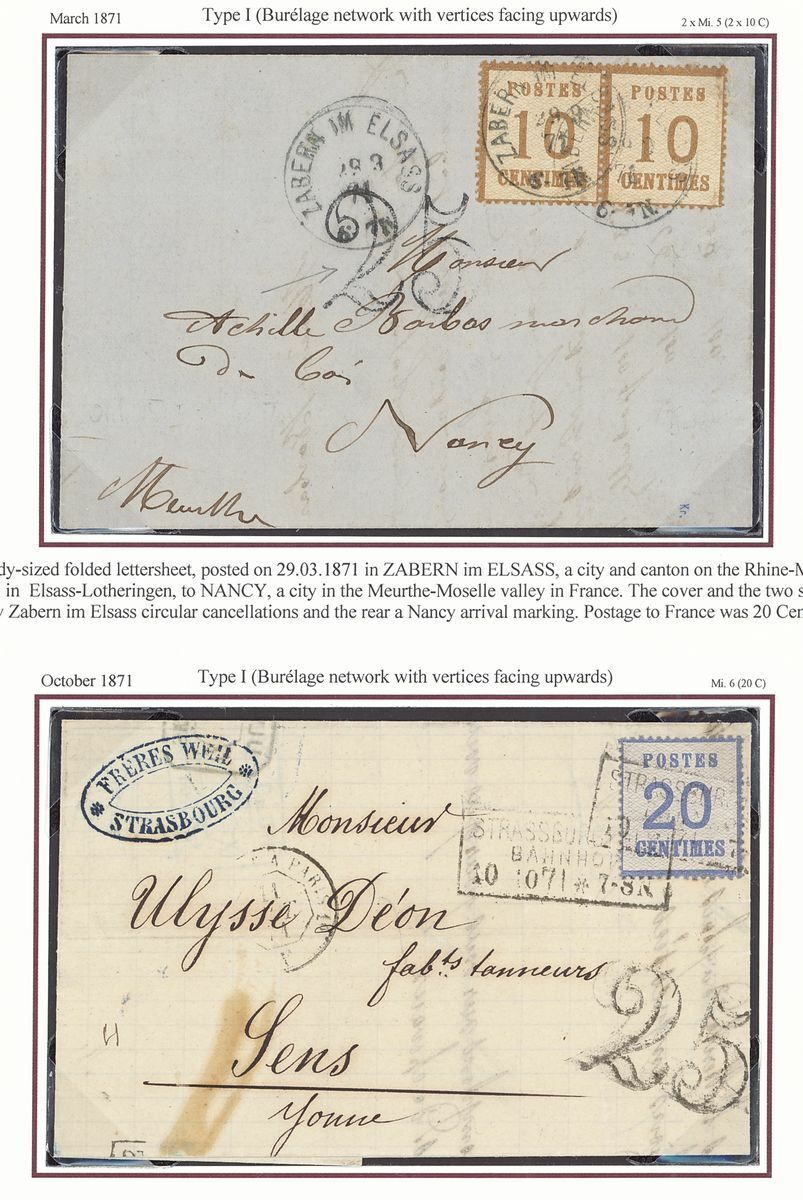 March 1871
Type I (Burélage network with vertices facing upwards)
2 x Mi. 5 (2 x 10 C)
POSTES
10
CENTIMES
POSTES
10
CENTIMES
ZABERN IM ELSASS
29 3
71
6-7N
ZABERN IM
6-7N
25
Monsieur
Achille Barbas marchand
de
Nancy
Meurthe
Kr.
dy-sized folded lettersheet, posted on 29.03.1871 in ZABERN im ELSASS, a city and canton on the Rhine-M
in Elsass-Lotheringen, to NANCY, a city in the Meurthe-Moselle valley in France. The cover and the two s
y Zabern im Elsass circular cancellations and the rear a Nancy arrival marking. Postage to France was 20 Cen
October 1871
Type I (Burélage network with vertices facing upwards)
Mi. 6 (20 C)
FRÈRES WEIL
STRASBOURG
POSTES
20
CENTIMES
STRASSBURG
BAHNHOF
10 1071 * 7-8N
STRASSBURG
Monsieur
Ulysse Déon
fabts tanneurs
Sens
Yonne
25